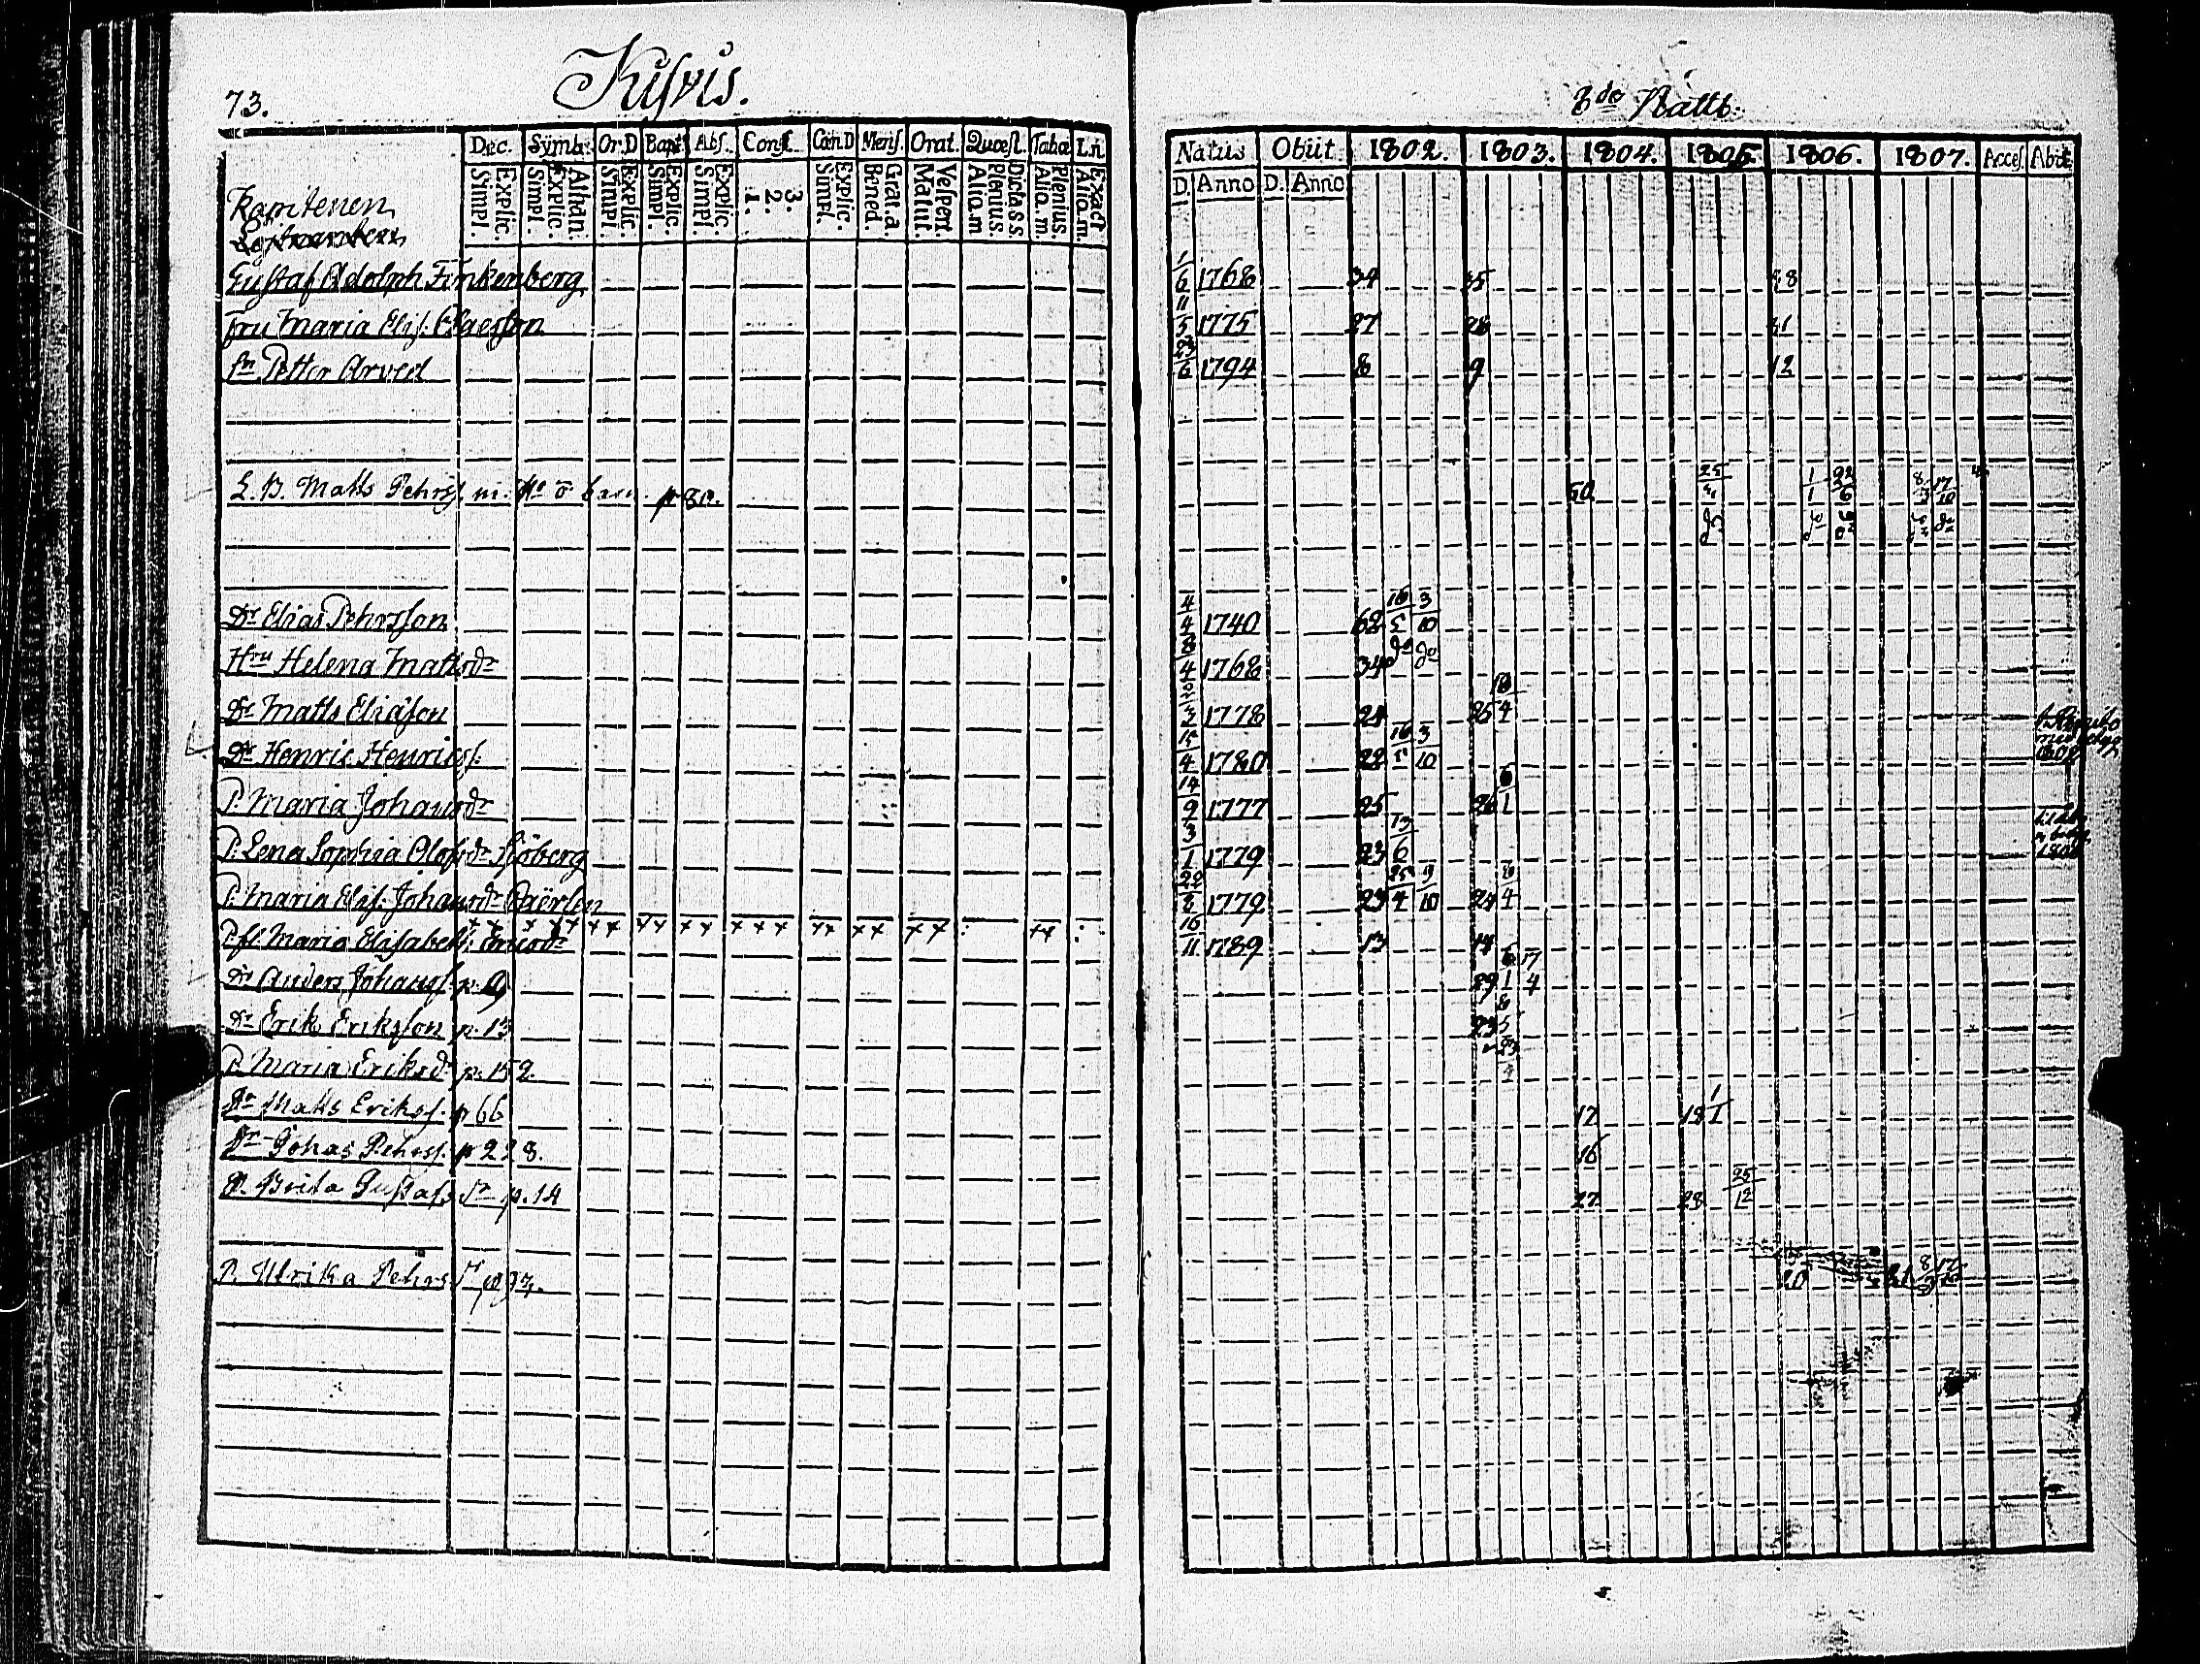 73.
Kisvis.
Dec. Symb: Or.D Bapt Abs. Conf. Cœn.D Mens. Orat. Quæst. Taba L.n
Explic. Simpl. Athan. Explic. Simpl. Explic. Simpl. Explic. Simpl. Explic. Simpl. 3. 2. 1. Explic. Simpl. Grat.a. Bened. Vespert. Matut. Dicta S.S. Plenius Aliq.m Plenius. Aliq.m. Exact Aliq.m.
Kapitenen
Gustaf Adolph Finkenberg
Fru Maria Elis. Claesson
Sn Petter Arved
L. B. Matts Pehrss. m. Ho o barn. p 82.
Dr Elias Pehrsson
Hru Helena Mattsdr
Dr Matts Eliasson
Dr Henric Henricss.
P. Maria Johansdr
P. Lena Sophia Olofsdr Sjöberg
P. Maria Elis. Johansdr
P.fl. Maria Elisabeth
Dr Anders Johanss. p. 9
Dr Erik Eriksson p. 13
P. Maria Eriksdr p. 152
Dr Matts Erikss. p 66
Dr Johas Pehrss. p 228.
P. Brita Gustafsdr p. 14
P. Ulrika Pehrsdr p 97.
8de Rätts.
Natus Obiit 1802. 1803. 1804. 1805. 1806. 1807. Acces. Abiit
D. Anno D. Anno
1/6 1768 34 35 38
11/5 1775 27 28 31
23/6 1794 8 9 12
50 25 1/1 22/6 8/3 17/10
do do do do do
4/4 1740 62 16/5 3/10
8/4 1768 34 do do
2/3 1778 24 25 18/4
15/4 1780 22 16/5 3/10
14/9 1777 25 26 6/1
3/1 1779 23 13/6
22/8 1779 23 25/4 9/10 24 8/4
16/11 1789 13 14
29 6/1 17/4
23 8/5
23
17 18 1/1
16
27 28 25/12
20 21 8/3 17/10